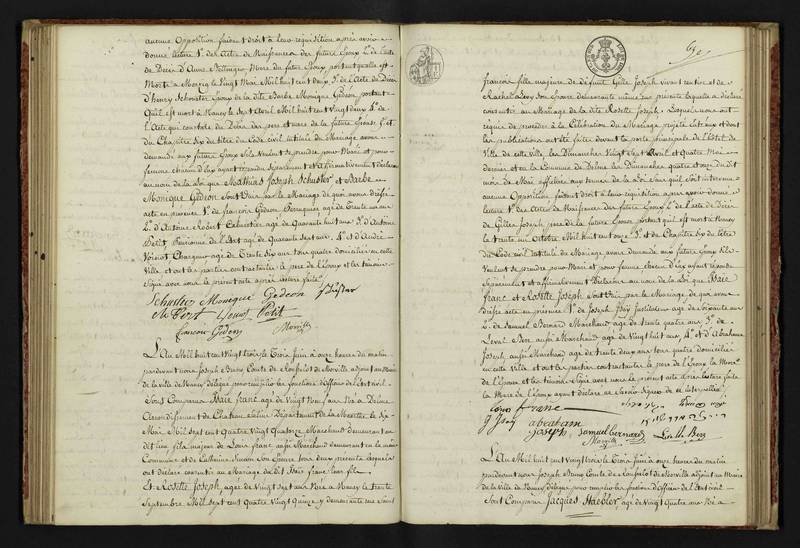 aucune Opposition faisant droit à leur réquisition après avoir
donné lecture 1º des Actes de Naissances des futurs Epoux 2º de l'acte
de Décès d'Anne Mere du futur Epoux portant qu'elle est
Morte à le vingt Mai Mil huit cent deux 3º de l'acte du Décès
d'henry Schouster Epoux de la dite Barbe Monique Gédeon portant
Qu'il est mort à Nancy le sept Avril Mil huit cent vingt deux 4º de
l'Acte qui constate le Décès des pere et mere de la future Epouse & et
du Chapitre six du titre du Code civil intitulé du Mariage avons
demandé aux futurs Epoux s'ils veulent se prendre pour Mari et pour
femme chacun d'eux ayant répondu séparément et affirmativement déclarons
au nom de la Loi que Mathias Joseph Schuster et Barbe
Monique Gédeon sont Unis par le Mariage de quoi avons dressé
acte en présence 1º de françois Gédeon Perruquier, agé de trente un ans
2º d'Antoine Robert Cabaretier agé de Quarante huit ans 3º d'Antoine
Petit, Pensionné de l'Etat agé de Quarante sept ans, 4º et d'André
Voinot Chargeur agé de trente six ans tous quatre domiciliés en cette
Ville et ont les parties contractantes le pere de l'Epoux et les témoins
Signé avec nous le présent acte après lecture faite
Schuster Monique Gedeon Schuster
Petit
Francois Gédeon
L'An Mil huit cent Vingt trois le Trois Juin à onze heures du matin
pardevant nous Joseph Bruno Comte de adjoint au Maire
de la Ville de Nancy délégué pour remplir les fonctions d'officier de l'Etat civil
Sont Comparus Isaïe franc agé de vingt Neuf ans Né à Delme
arrondissement de Chateau Salins Département de la Meurthe le
Mai Mil sept cent Quatre Vingt Quatorze Marchand demeurant au
dit lieu fils majeur de Louis franc aussi Marchand demeurant en la même
Commune et de Catherine Simon son Epouse tous deux présents lesquels
ont déclaré consentir au Mariage du dit Isaïe franc leur fils
Et Rosette Joseph, agée de Vingt sept ans Née à Nancy le trente
Septembre Mil sept cent Quatre Vingt Quinze y demeurante rue Saint
françois fille majeure de défunt Gilles Joseph vivant rentier et de
Rachel Levy son Epouse demeurante même rue présente laquelle a déclaré
consentir au Mariage de la dite Rosette Joseph. Lesquels nous ont
requis de procéder à la Célébration du Mariage projeté entre eux et dont
les publications ont été faites devant la porte principale de l'hôtel de
Ville de cette ville, les Dimanches Vingt Sept Avril et Quatre Mai
derniers et en la Commune de Delme les Dimanches quatre et onze du dit
mois de Mai affichées aux termes de la Loi sans qu'il soit intervenu
aucune Opposition faisant droit à leur réquisition après avoir donné
lecture 1º des Actes de Naissances des futurs Epoux 2º de l'acte de Décès
de Gilles Joseph pere de la future Epouse portant qu'il est mort à Nancy
le trente un Octobre Mil huit cent onze 3º et du Chapitre six du titre
du Code civil intitulé du Mariage avons demandé aux futurs Epoux s'ils
veulent se prendre pour Mari et pour femme chacun d'eux ayant répondu
Séparément et affirmativement Déclarons au nom de la Loi que Isaïe
franc et Rosette Joseph sont Unis par le Mariage de quoi avons
dressé acte en présence 1º de Joseph Isay Instituteur agé de soixante ans
2º de Samuel Bernard Marchand agé de trente quatre ans, 3º de
Levi Bin aussi Marchand agé de vingt huit ans, 4º et d'Abraham
Joseph aussi Marchand agé de trente deux ans tous quatre domiciliés
en cette Ville et ont les parties contractantes le pere de l'Epoux, la Mere
de l'Epouse et les témoins Signé avec nous le présent acte après lecture faite
la Mere de l'Epoux ayant déclaré ne savoir Signer de ce interpellée
Louis franc
J Isay abraham
joseph Samuel Bernard
L'An Mil huit cent Vingt trois le Trois Juin à onze heures du matin
pardevant nous Joseph Bruno Comte de adjoint au Maire
de la Ville de Nancy délégué pour remplir les fonctions d'officier de l'Etat civil
Sont Comparus Jacques Haebler agé de Vingt quatre ans Né à